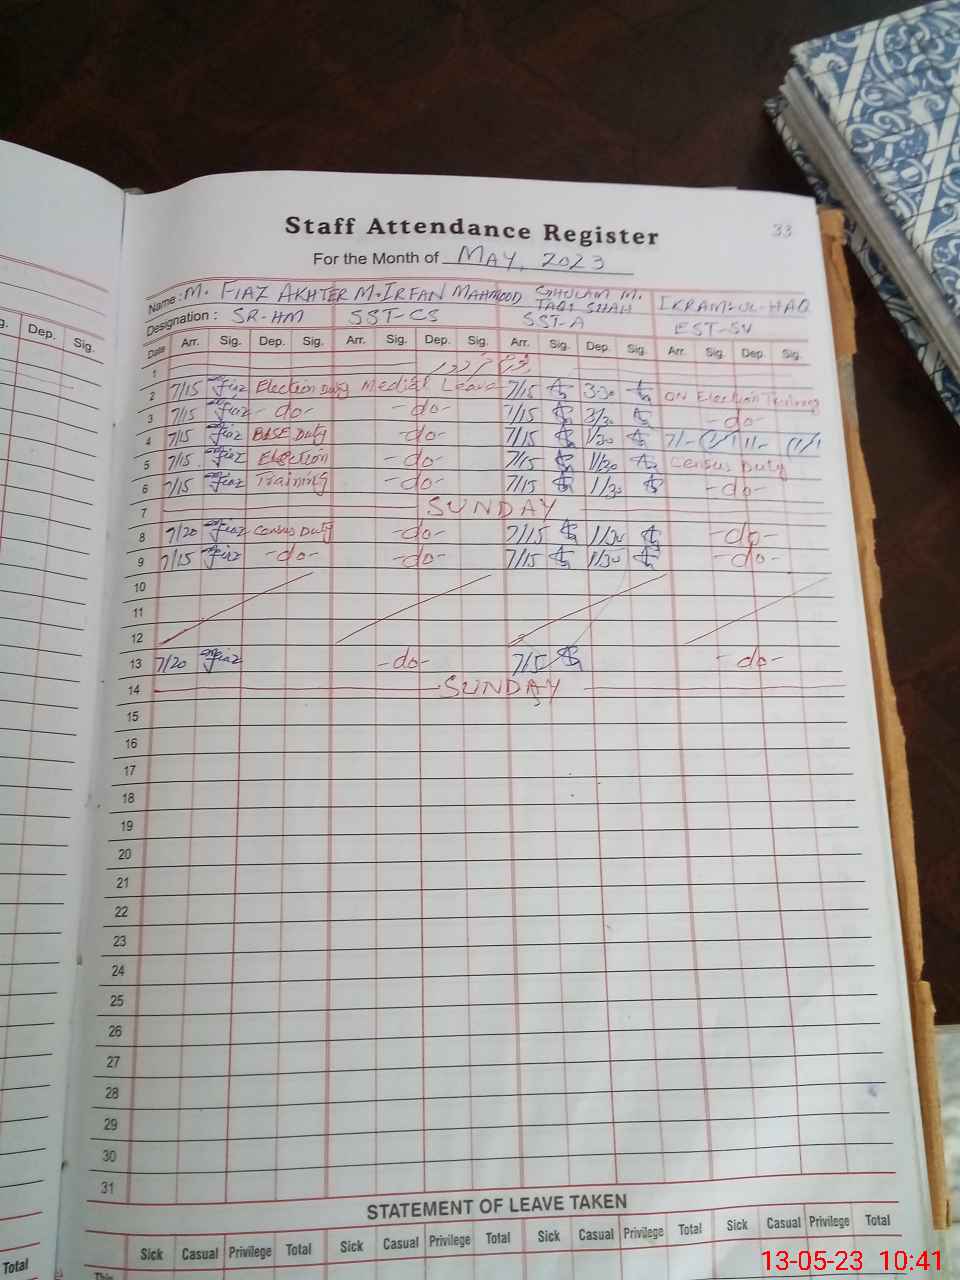 Staff Attendance Register
33
For the Month of MAY, 2023
Name : M. FIAZ AKHTER M. IRFAN MAHMOOD GHULAM M. TAQI SHAH IKRAM-UL-HAQ
Designation : SR-HM SST-CS SST-A EST-SV
g. Dep. Sig.
Date Arr. Sig. Dep. Sig. Arr. Sig. Dep. Sig. Arr. Sig. Dep. Sig. Arr. Sig. Dep. Sig.
1
2 7/15 Fiaz Election Duty Medical Leave 7/15 3:30 ON Election Training
3 7/15 Fiaz -do- -do- 7/15 3/30 -do-
4 7/15 Fiaz BASE Duty -do- 7/15 1/30
5 7/15 Fiaz Election -do- 7/15 1/30 Census Duty
6 7/15 Fiaz Training -do- 7/15 1/30 -do-
7 SUNDAY
8 7/20 Fiaz Census Duty -do- 7/15 1/30 -do-
9 7/15 Fiaz -do- -do- 7/15 1/30 -do-
10
11
12
13 7/20 Fiaz -do- 7/15 -do-
14 SUNDAY
15
16
17
18
19
20
21
22
23
24
25
26
27
28
29
30
31
STATEMENT OF LEAVE TAKEN
Sick Casual Privilege Total Sick Casual Privilege Total Sick Casual Privilege Total Sick Casual Privilege Total
Total
This
13-05-23 10:41